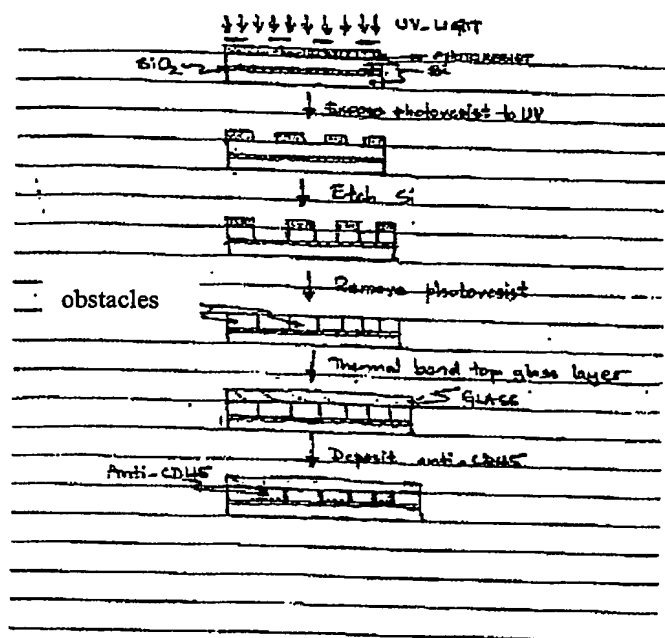 UV-LIGHT
PHOTORESIST
SiO₂
Si
Expose photoresist to UV
Etch Si
Remove photoresist
obstacles
Thermal bond top glass layer
GLASS
Deposit anti-CD45
Anti-CD45